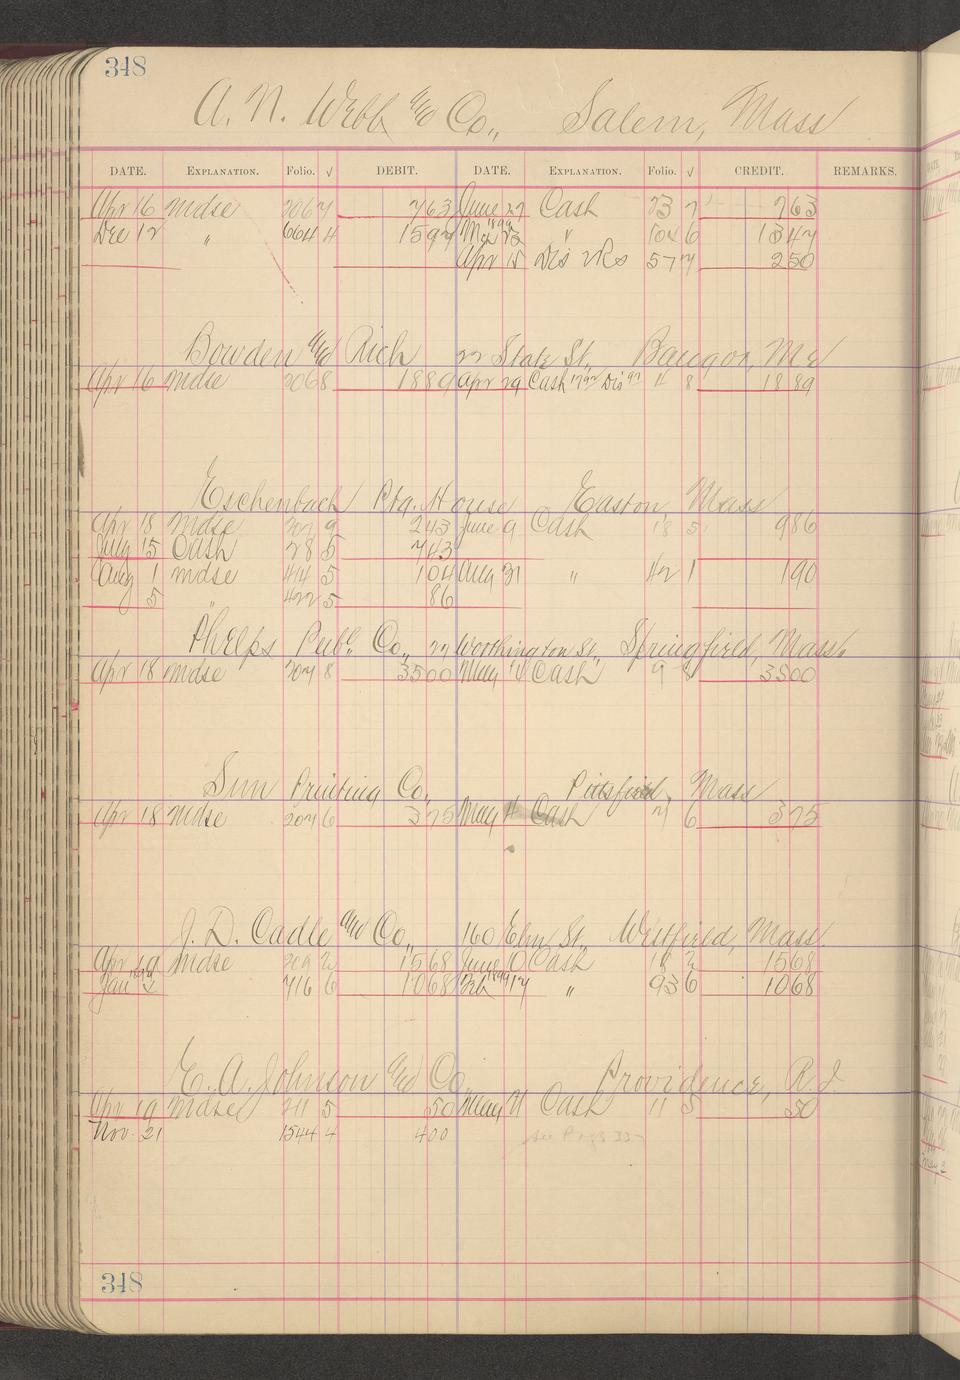 348
A. N. Webb and Co., Salem, Mass
DATE. EXPLANATION. Folio. √ DEBIT. DATE. EXPLANATION. Folio. √ CREDIT. REMARKS.
Apr 16 Mdse 206 7 763 June 27 Cash 23 7 763
Dec 12 " 664 4 1597 1899 " 104 6 1347
Apr 15 Dis 57 7 250
Bowden and Rich 22 State St., Bangor, Me
Apr 16 Mdse 206 8 1889 Apr 29 Cash 1792 Dis 97 4 8 1889
Eschenbach Ptg. House Easton, Mass
Apr 18 Mdse 207 9 243 June 9 Cash 18 5 986
July 15 Cash 28 5 743
Aug 1 Mdse 414 5 104 Aug 31 " 42 1 190
5 " 422 5 86
Phelps Publ. Co., 27 Worthington St., Springfield, Mass.
Apr 18 Mdse 207 8 3500 May Cash 9 3500
Sun Printing Co., Pittsfield, Mass
Apr 18 Mdse 207 6 375 May Cash 7 6 375
J. D. Cadle and Co., 160 Elm St., Westfield, Mass
Apr 19 Mdse 209 2 1568 June 10 Cash 18 2 1568
Jan 1899 2 716 6 1068 Feb 1899 17 " 93 6 1068
E. A. Johnson and Co., Providence, R.I.
Apr 19 Mdse 211 5 50 May 21 Cash 11 5 50
Nov. 21 1544 4 400 see Page 33
348